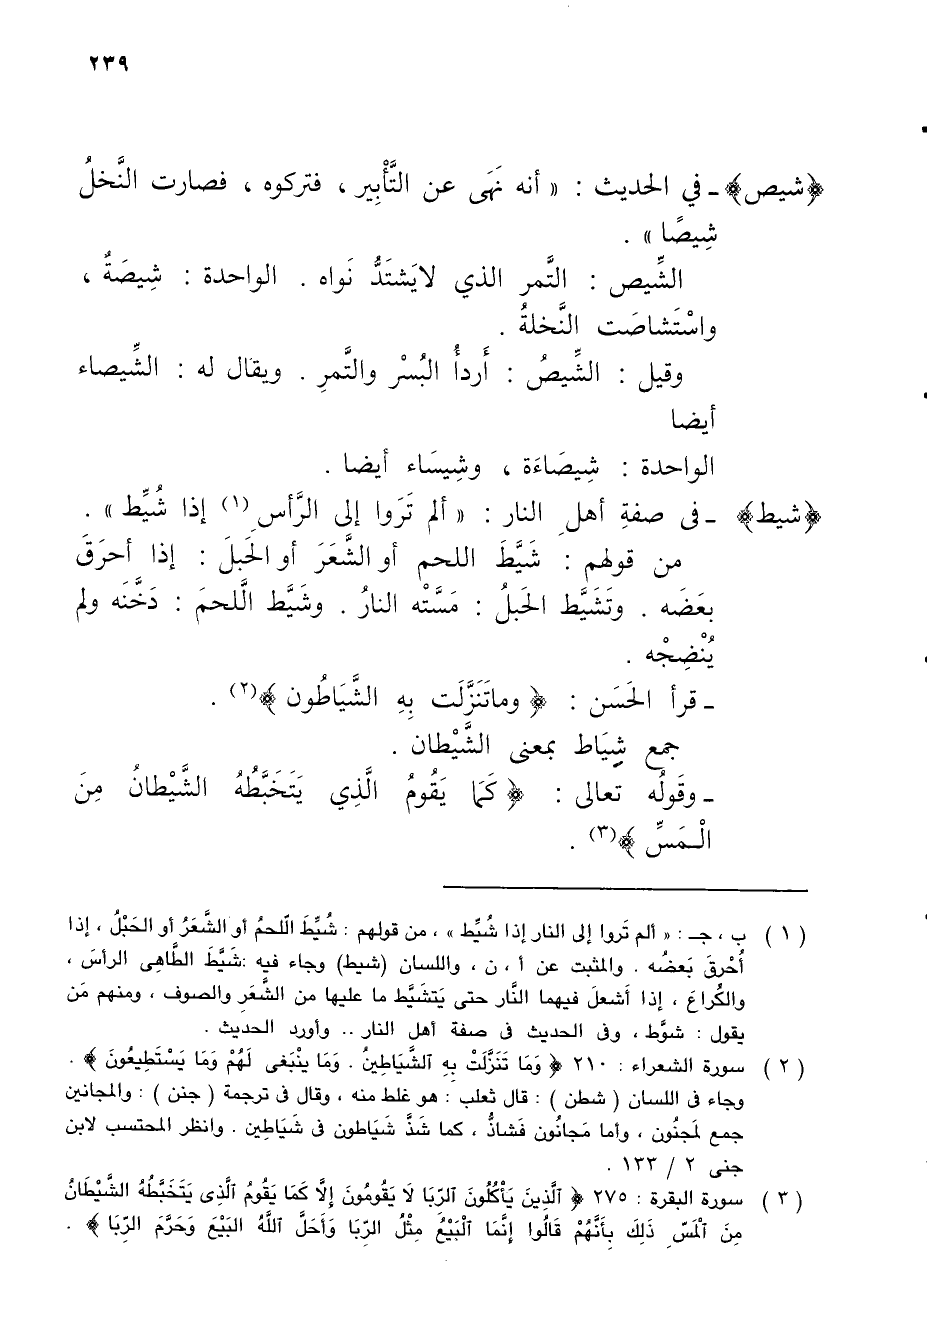 ٢٣٩
﴿شيص﴾ ـ في الحديث : « أنه نَهَى عن التَّأْبِير ، فتركوه ، فصارت النَّخلُ
شِيصًا » .
الشِّيص : التَّمر الذي لايَشتَدُّ نَواه . الواحدة : شِيصَةٌ ،
واسْتَشاصَت النَّخلةُ .
وقيل : الشِّيصُ : أَردأُ البُسْر والتَّمرِ . ويقال له : الشِّيصاء
أيضا
الواحدة : شِيصَاءَة ، وشِيسَاء أيضا .
﴿شيط﴾ ـ فى صفةِ أهلِ النار : « ألم تَروا إلى الرَّأسِ (١) إذا شُيِّط » .
من قولهم : شَيَّطَ اللحم أو الشَّعَرَ أو الحَبلَ : إذا أحرَقَ
بعَضَه . وتَشَيَّط الحَبلُ : مَسَّته النارُ . وشَيَّط الَّلحمَ : دَخَّنَه ولم
يُنْضِجْه .
ـ قرأ الحَسَن : ﴿ وماتَنَزَّلَت بِهِ الشَّيَاطُون ﴾(٢) .
جمع شِيَاط بمعنى الشَّيْطان .
ـ وقَولُه تعالى : ﴿ كَمَا يَقُومُ الَّذِي يَتَخَبَّطُهُ الشَّيْطانُ مِنَ
الْـمَسِّ ﴾(٣) .
( ١ ) ب ، جـ : « ألم تَروا إلى النار إذا شُيِّط » ، من قولهم : شُيِّطَ الَّلحمُ أو الشَّعَرُ أو الحَبْلُ ، إذا
أُحرقَ بَعضُه . والمثبت عن أ ، ن ، واللسان (شيط) وجاء فيه :شَيَّطَ الطَّاهى الرأسَ ،
والكُراعَ ، إذا أشعلَ فيهما النَّار حتى يَتشَيَّط ما عليها من الشَّعَر والصوف ، ومنهم مَن
يقول : شوَّط ، وفى الحديث فى صفة أهل النار .. وأورد الحديث .
( ٢ ) سورة الشعراء : ٢١٠ ﴿ وَمَا تَنَزَّلَتْ بِهِ ٱلشَّيَاطِينُ . وَمَا يَنْبَغى لَهُمْ وَمَا يَسْتَطِيعُونَ ﴾ .
وجاء فى اللسان ( شطن ) : قال ثعلب : هو غلط منه ، وقال فى ترجمة ( جنن ) : والمجانين
جمع لمجنُون ، وأما مَجانُون فَشاذٌّ ، كما شَذَّ شَياطون فى شَياطين . وانظر المحتسب لابن
جنى ٢ / ١٣٣ .
( ٣ ) سورة البقرة : ٢٧٥ ﴿ ٱلَّذِينَ يَأْكُلُونَ ٱلرِّبَا لَا يَقُومُونَ إِلَّا كَمَا يَقُومُ ٱلَّذِى يَتَخَبَّطُهُ الشَّيْطَانُ
مِنَ ٱلْمَسِّ ذَلِكَ بِأَنَّهُمْ قَالُوا إِنَّمَا ٱلْبَيْعُ مِثْلُ الرِّبَا وَأَحَلَّ ٱللَّهُ البَيْعَ وَحَرَّمَ الرِّبَا ﴾ .